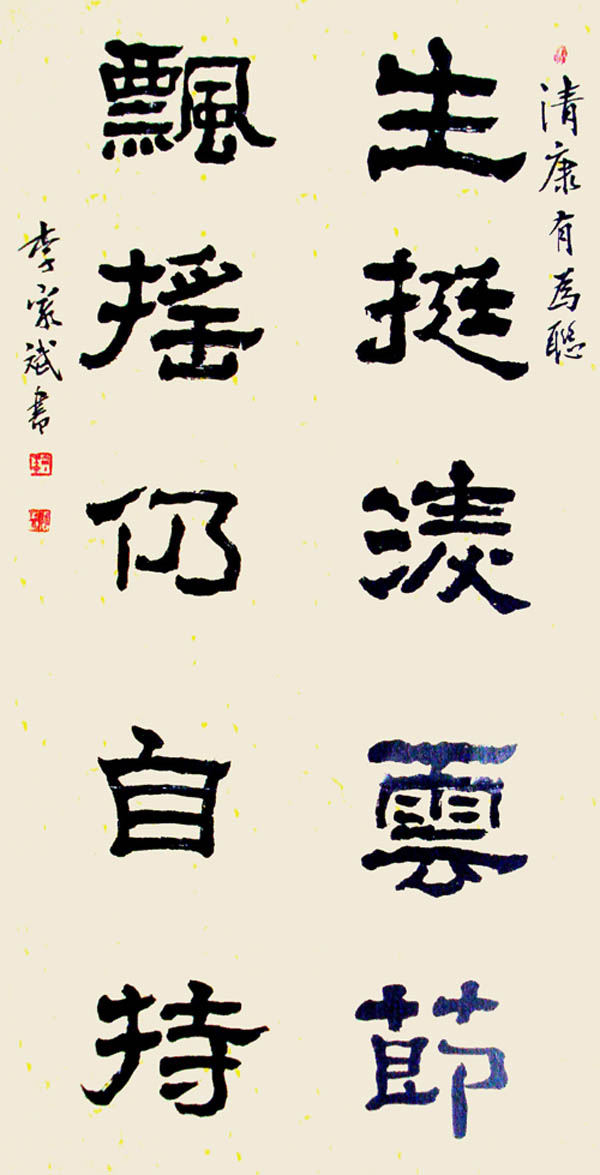 清康有為聯
生挺淩雲節
飄搖仍自持
李家斌書